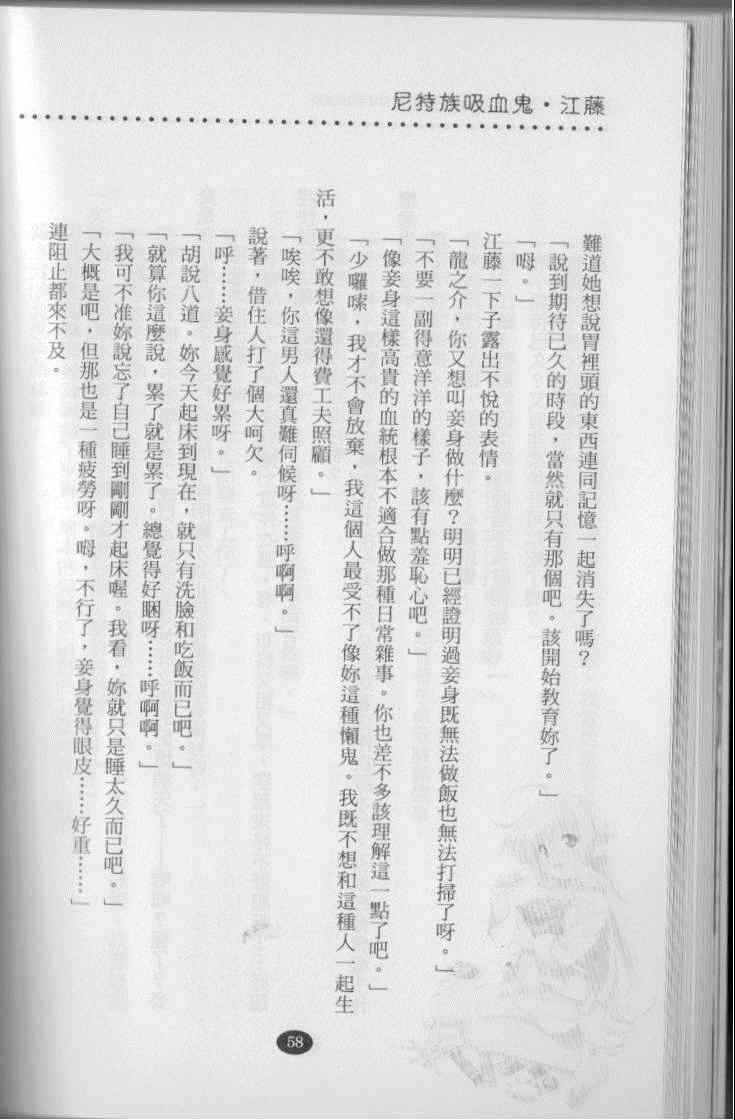 尼特族吸血鬼・江藤
難道她想說胃裡頭的東西連同記憶一起消失了嗎？
「說到期待已久的時段，當然就只有那個吧。該開始教育妳了。」
「呣。」
江藤一下子露出不悅的表情。
「龍之介，你又想叫妾身做什麼？明明已經證明過妾身既無法做飯也無法打掃了呀。」
「不要一副得意洋洋的樣子，該有點羞恥心吧。」
「像妾身這樣高貴的血統根本不適合做那種日常雜事。你也差不多該理解這一點了吧。」
「少囉嗦，我才不會放棄，我這個人最受不了像妳這種懶鬼。我既不想和這種人一起生
活，更不敢想像還得費工夫照顧。」
「唉唉，你這男人還真難伺候呀……呼啊啊。」
說著，借住人打了個大呵欠。
「呼……妾身感覺好累呀。」
「胡說八道。妳今天起床到現在，就只有洗臉和吃飯而已吧。」
「就算你這麼說，累了就是累了。總覺得好睏呀……呼啊啊。」
「我可不准妳說忘了自己睡到剛剛才起床喔。我看，妳就只是睡太久而已吧。」
「大概是吧，但那也是一種疲勞呀。呣，不行了，妾身覺得眼皮……好重……」
連阻止都來不及。
58